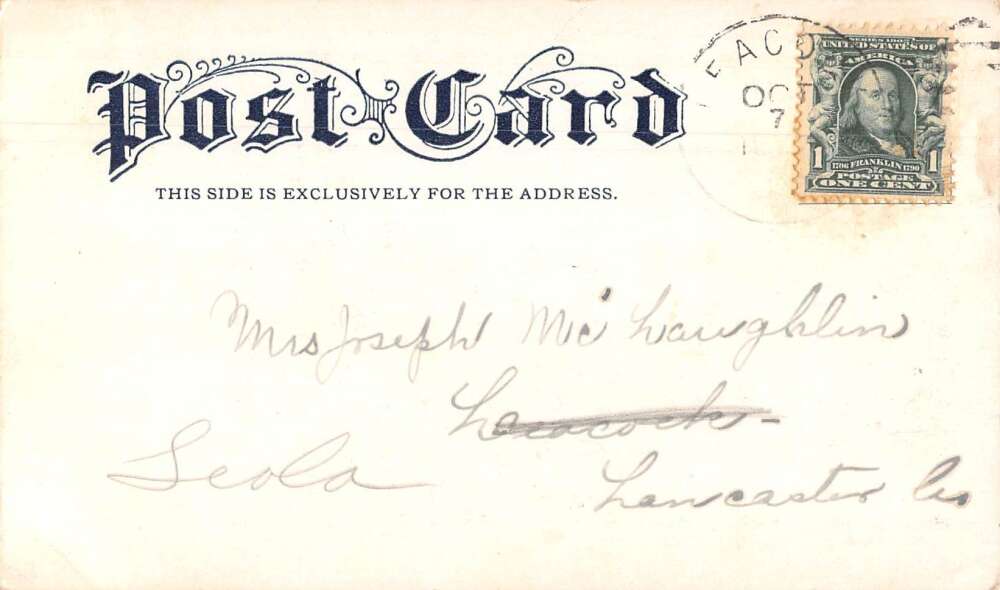 Post Card
THIS SIDE IS EXCLUSIVELY FOR THE ADDRESS.
EACO
OCT
7
SERIES 1902
UNITED STATES OF
AMERICA
1 1706 FRANKLIN 1790 1
POSTAGE
ONE CENT
Mrs Joseph McLaughlin
Leacock
Leola
Lancaster Co